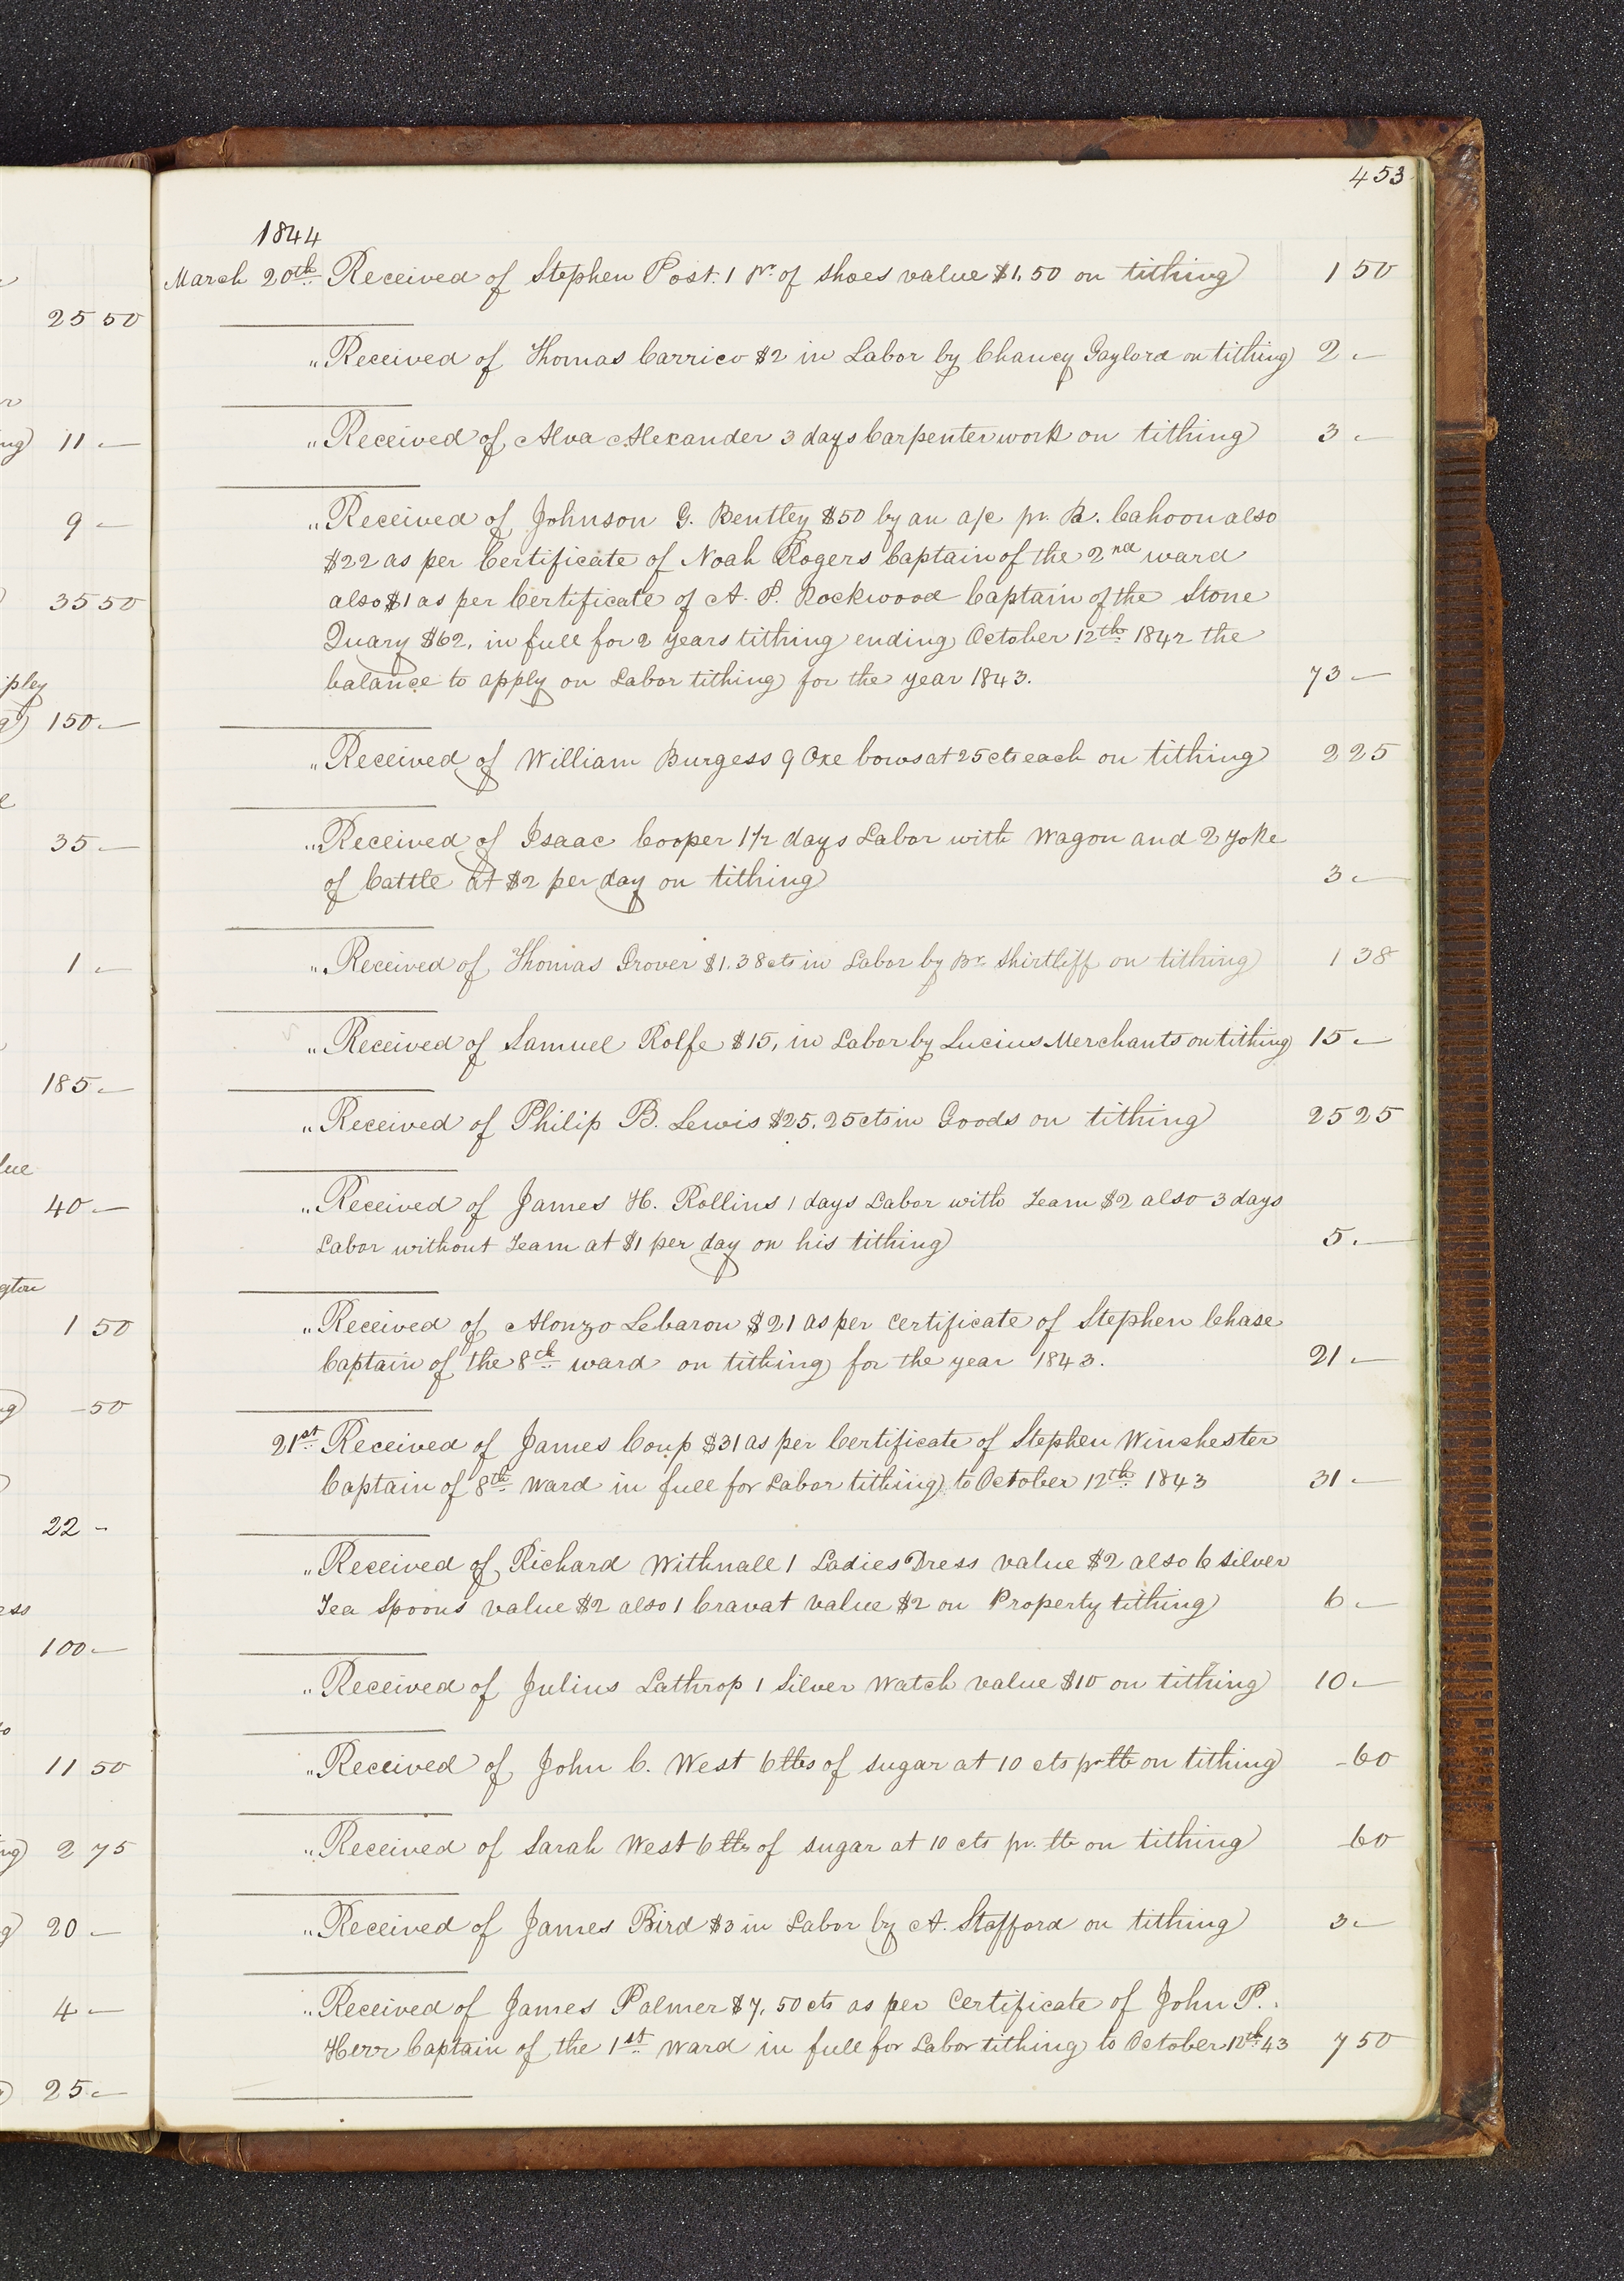 453
1844
March 20th Received of Stephen Post. 1 pr. of shoes value $1.50 on tithing 1 50
" Received of Thomas Carrico $2 in Labor by Chancy Gaylord on tithing 2 -
" Received of Alva Alexander 3 days Carpenter work on tithing 3 -
" Received of Johnson G. Bentley $50 by an a/c pr. R. Cahoon also
$22 as per Certificate of Noah Rogers Captain of the 2nd ward
also $1 as per Certificate of A. P. Rockwood Captain of the Stone
Quary $62. in full for 2 years tithing ending October 12th 1842 the
balance to apply on Labor tithing for the year 1843. 73 -
" Received of William Burgess 9 Oxe bows at 25 cts each on tithing 2 25
" Received of Isaac Cooper 1 1/2 days Labor with Wagon and 2 yoke
of Cattle at $2 per day on tithing 3 -
" Received of Thomas Grover $1.38 cts in Labor by Br. Shirtliff on tithing 1 38
" Received of Samuel Rolfe $15, in Labor by Lucius Merchants on tithing 15 -
" Received of Philip B. Lewis $25.25 cts in Goods on tithing 25 25
" Received of James H. Rollins 1 days Labor with Team $2 also 3 days
Labor without Team at $1 per day on his tithing 5. -
" Received of Alonzo Lebaron $21 as per certificate of Stephen Chase
Captain of the 8th ward on tithing for the year 1843. 21 -
21st Received of James Coup $31 as per Certificate of Stephen Winchester
Captain of 8th Ward in full for Labor tithing to October 12th 1843 31 -
" Received of Richard Withnall 1 Ladies Dress value $2 also 6 silver
Tea Spoons value $2 also 1 Cravat value $2 on Property tithing 6 -
" Received of Julius Lathrop 1 Silver Watch value $10 on tithing 10 -
" Received of John C. West 6 lbs of sugar at 10 cts pr lb on tithing - 60
" Received of Sarah West 6 lbs of sugar at 10 cts pr. lb on tithing 60
" Received of James Bird $3 in Labor by A. Stafford on tithing 3 -
" Received of James Palmer $7.50 cts as per Certificate of John P.
Herr Captain of the 1st Ward in full for Labor tithing to October 12th 43 7 50
25 50
ng 11 -
9 -
35 50
pley
150 -
35 -
1 -
185 -
lue
40 -
gton
1 50
ng - 50
22 -
ess
100 -
11 50
ng 2 75
g 20 -
4 -
25 -